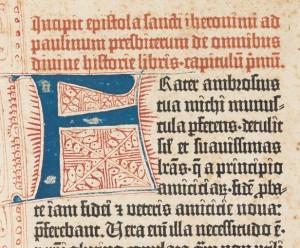 Incipit epistola sancti iheronimi ad
paulinum presbiterum de omnibus
divine historie libris. capitulū pͥmū.
Frater ambrosius
tua michi munus-
cula pferens. detulit
sil et suavissimas
lrās. q̄ a principio
amicicia⁊. fidē pba-
te iam fidei ⁊ veteris amicicie nova:
pferebant. Vera em̄ illa necessitudo ē.